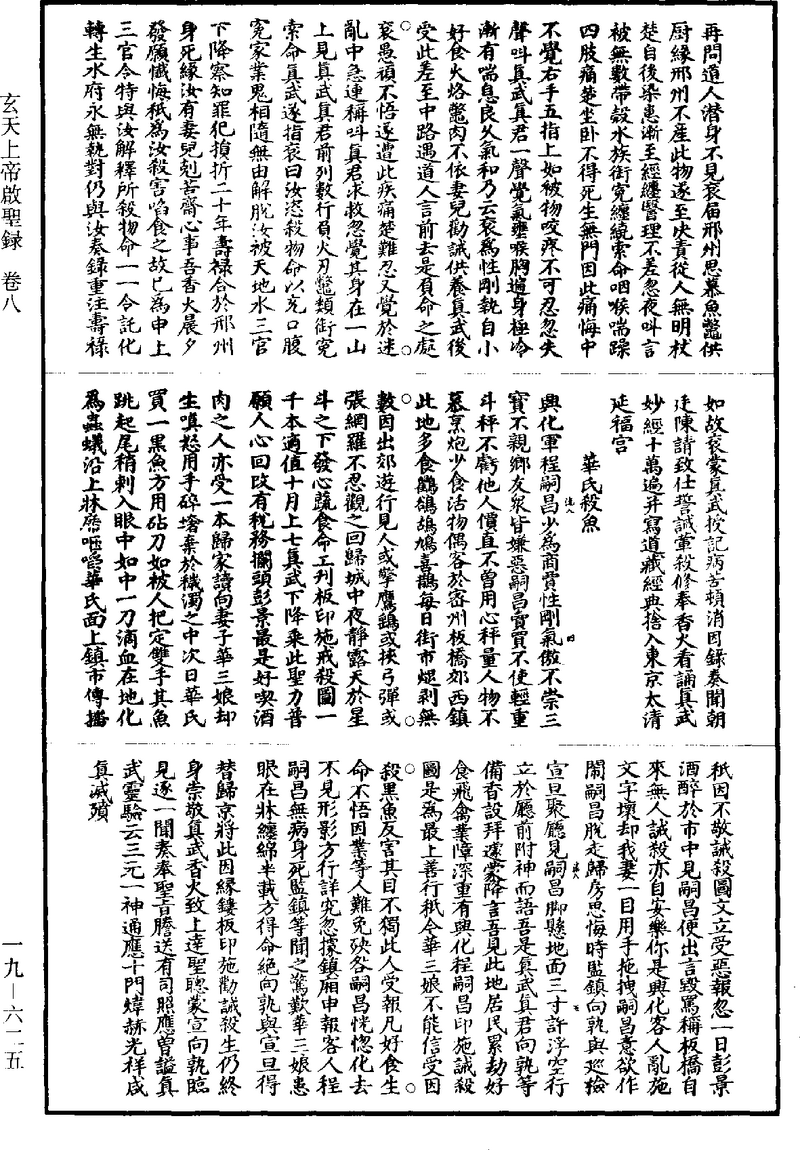 再問道人潛身不見裒届邢州思慕魚鼈供
厨緣邢州不產此物遂至吷責從人無明杖
楚自後染患漸至經纏醫理不差忽夜叫言
被無數帶殼水族街寃纏繞索命咽喉喘躁
四肢痛楚坐卧不得死生無門因此痛悔中
不覺右手五指上如被物咬疼不可忍忽失
聲叫真武真君一聲覺氣壅喉胸遍身極冷
漸有喘息良久氣和乃云裒為性剛執自小
好食火烙鼈肉不依妻兒勸誡供養真武後
受此差至中路遇道人言前去是負命之處
裒愚頑不悟遂遭此疾痛楚難忍又覺於迷
亂中急連稱叫真君求救忽覺其身在一山
上見真武真君前列數行負火刃鼈類街寃
索命真武遂指裒曰汝恣殺物命以充口腹
寃家業鬼相隨無由解脫汝被天地水三官
下降察知罪犯損折二十年壽祿合於邢州
身死緣汝有妻兒剋苦齋心事吾香火晨夕
發願懺悔秖為汝殺害啗食之故已為申上
三官令特與汝解釋所殺物命一一令託化
轉生水府永無執對仍與汝奏錄重注壽祿
如故裒蒙真武授記病苦頓消因錄奏聞朝
廷陳請致仕誓誡葷殺修奉香火看誦真武
妙經十萬遍并寫道藏經典捨入東京太清
延福宫
華氏殺魚
興化軍程嗣昌少為商賈性剛氣傲不崇三
寶不親鄉友衆皆嫌惡嗣昌賣買不使輕重
斗秤不虧他人價直不曾用心秤量人物不
慕烹炮少食活物偶客於密州板橋郊西鎮
此地多食鶴鴿鴣鳩喜鵲每日街市煺剥無
數因出郊遊行見人或擎鷹鷂或挾弓彈或
張網羅不忍觀之回歸城中夜靜露天於星
斗之下發心蔬食命工刋板印施戒殺圖一
千本適值十月上七真武下降乘此聖力普
願人心回改有稅務攔頭彭景最是好喫酒
肉之人亦受一本歸家讀向妻子華三娘却
生嗔怒用手碎塔棄於穢濁之中次日華氏
買一黑魚方用砧刀如被人把定雙手其魚
跳起尾稍刺入眼中如中一刀滴血在地化
為蟲蟻沿上牀蓆咂嚙華氏面上鎮市傳播
秖因不敬誡殺圖文立受惡報忽一日彭景
酒醉於市中見嗣昌便出言毀罵稱板橋自
來無人誡殺亦自安樂你是興化客人亂施
文字壞却我妻一目用手拖拽嗣昌意欲作
閙嗣昌脫走歸房思悔時監鎮向執與巡檢
宣旦聚廳見嗣昌脚懸地面三寸許浮空行
立於廳前附神而語吾是真武真君向執等
備香設拜遽蒙降言吾見此地居民累劫好
食飛禽業障深重有興化程嗣昌印施誡殺
圖是為最上善行秖令華三娘不能信受因
殺黑魚反害其目不獨此人受報凡好食生
命不悟因業等人難免殃咎嗣昌恍惚化去
不見形影方行詳究忽據鎮厢申報客人程
嗣昌無病身死監鎮等聞之驚歎華三娘患
眼在牀纏綿半載方得命絕向執與宣旦得
替歸京將此因緣鏤板印施勸誡殺生仍終
身崇敬真武香火致上達聖聰蒙宣向執臨
見逐一聞奏奉聖旨謄送有司照應曽謚真
武靈驗云三元一神通應十門煒赫光祥咸
真滅殞
玄天上帝啟聖録 卷八
一九—六二五